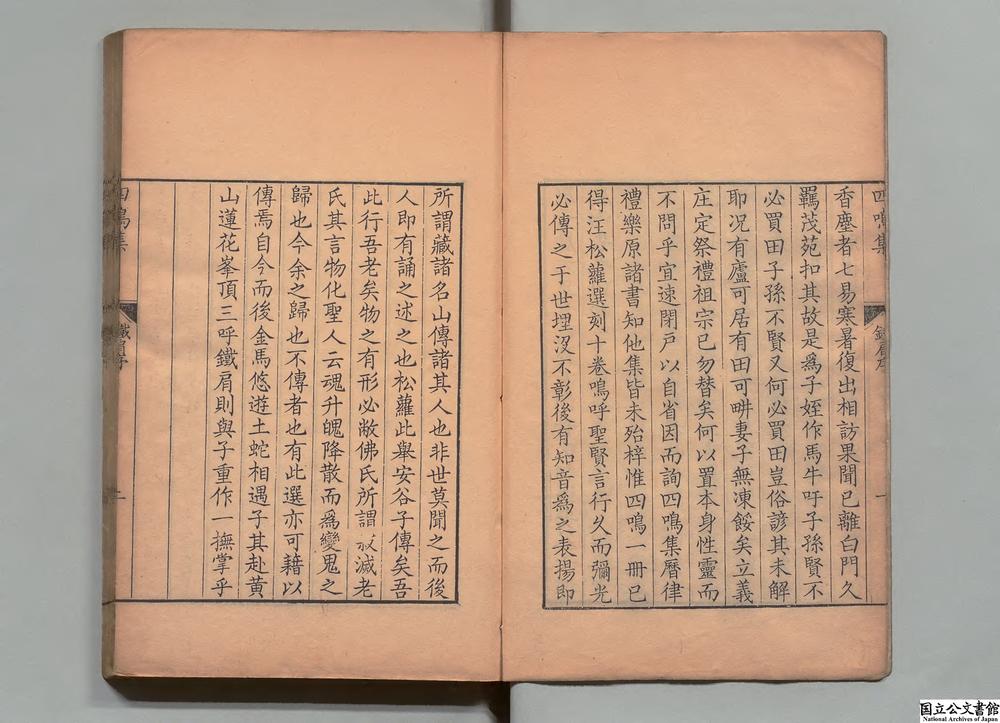 香塵者七易寒暑復出相訪果聞已離白門久
羈茂苑扣其故是爲子姪作馬牛吁子孫賢不
必買田子孫不賢又何必買田豈俗諺其未解
耶况有廬可居有田可畊妻子無凍餒矣立義
庄定祭禮祖宗已勿替矣何以置本身性靈而
不問乎宜速閉戸以自省因而詢四鳴集曆律
禮樂原諸書知他集皆未殆梓惟四鳴一冊已
得汪松蘿選刻十卷嗚呼聖賢言行久而彌光
必傳之于世埋没不彰後有知音爲之表揚即
四鳴集
一
所謂藏諸名山傳諸其人也非世莫聞之而後
人即有誦之述之也松蘿此舉安谷子傳矣吾
此行吾老矣物之有形必敝佛氏所謂滅老
氏其言物化聖人云魂升魄降散而爲變鬼之
歸也今余之歸也不傳者也有此選亦可藉以
傳焉自今而後金馬悠遊土蛇相遇子其赴黄
山蓮花峯頂三呼鐵肩則與子重作一撫掌乎
四鳴集
国立公文書館
National Archives of Japan